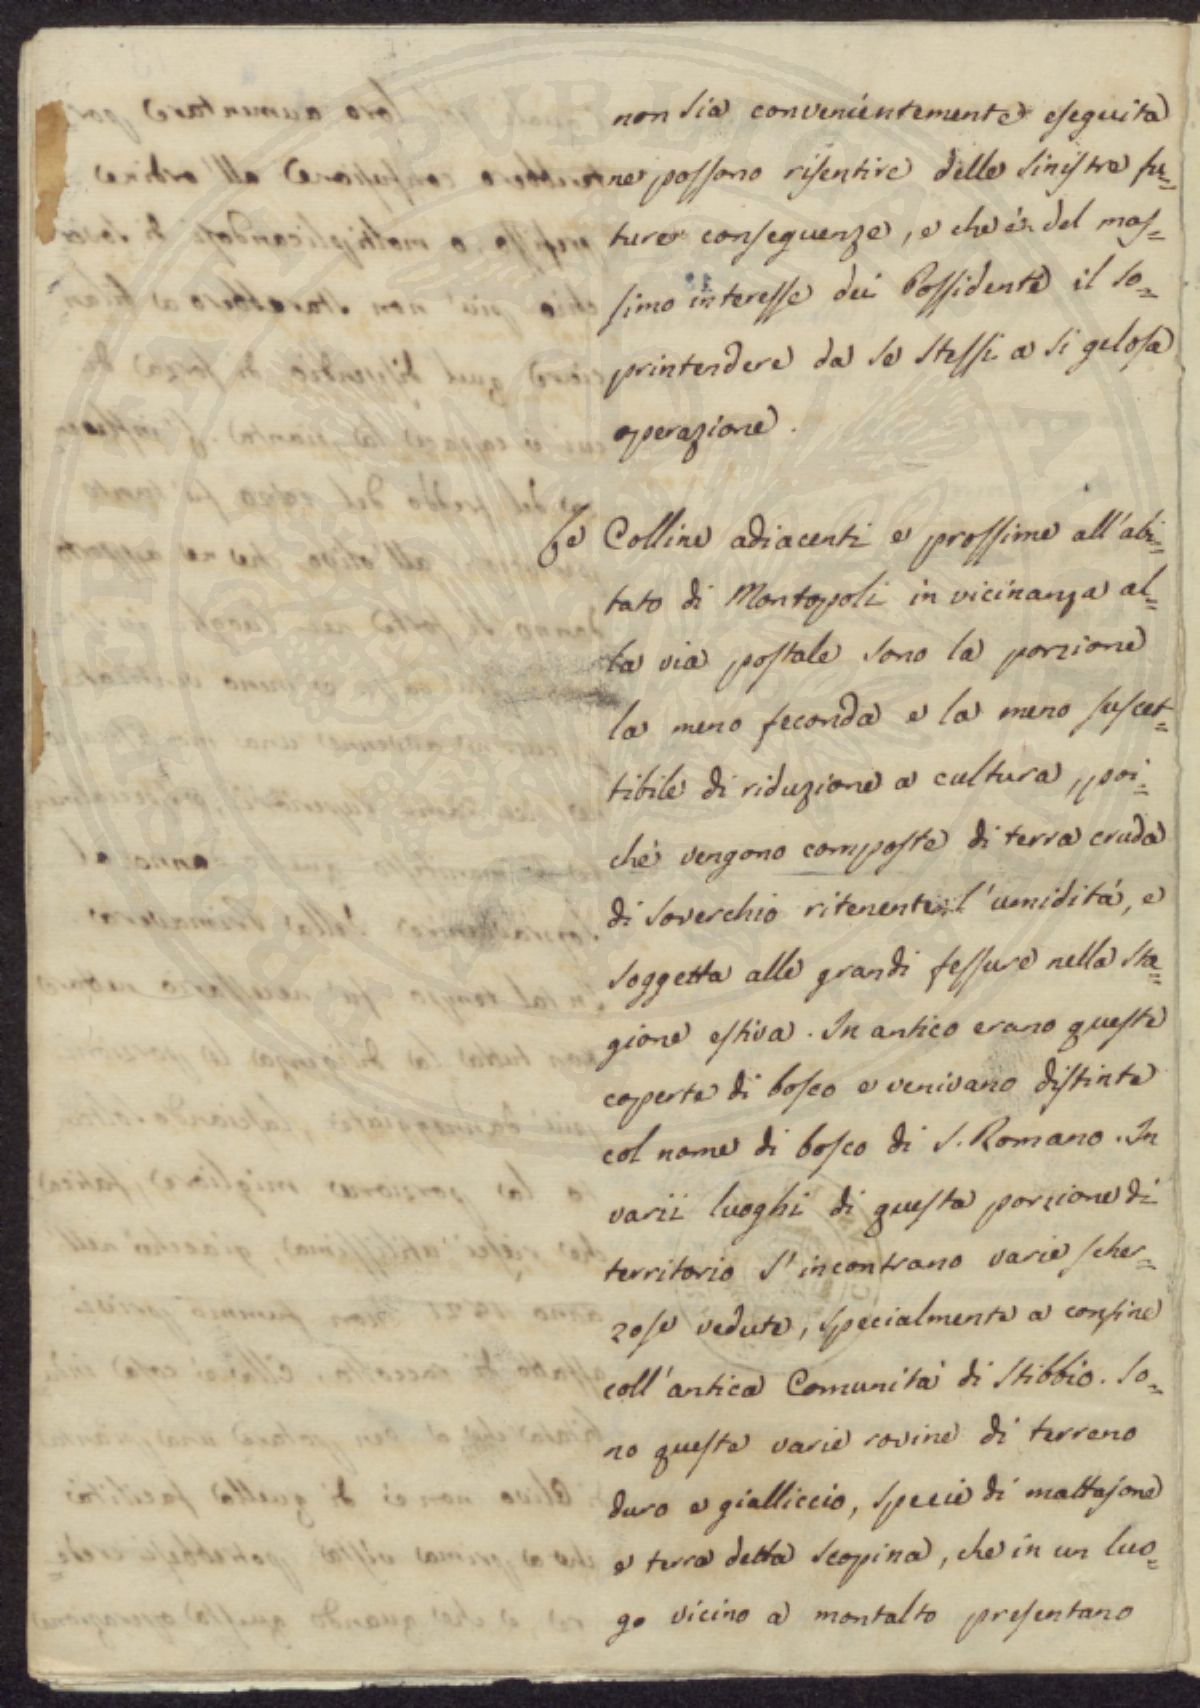 non sia convenientemente eseguita
ne possono risentire delle sinistre fu=
ture conseguenze, e che è del mas=
simo interesse dei Possidenti il so=
printendere da se stessi a si gelosa
operazione.
Le Colline adiacenti e prossime all'abi=
tato di Montopoli in vicinanza al=
la via postale sono la porzione
la meno feconda e la meno suscet=
tibile di riduzione a cultura, poi=
chè vengono composte di terra cruda
di soverchio ritenente l'umidità, e
soggetta alle grandi fessure nella sta=
gione estiva. In antico erano queste
coperte di bosco e venivano distinte
col nome di bosco di S. Romano. In
varii luoghi di questa porzione di
territorio s'incontrano varie scher=
zose vedute, specialmente a confine
coll'antica Comunità di Stibbio. So=
no queste varie rovine di terreno
duro e gialliccio, specie di mattajone
e terra detta scopina, che in un luo=
go vicino a montalto presentano